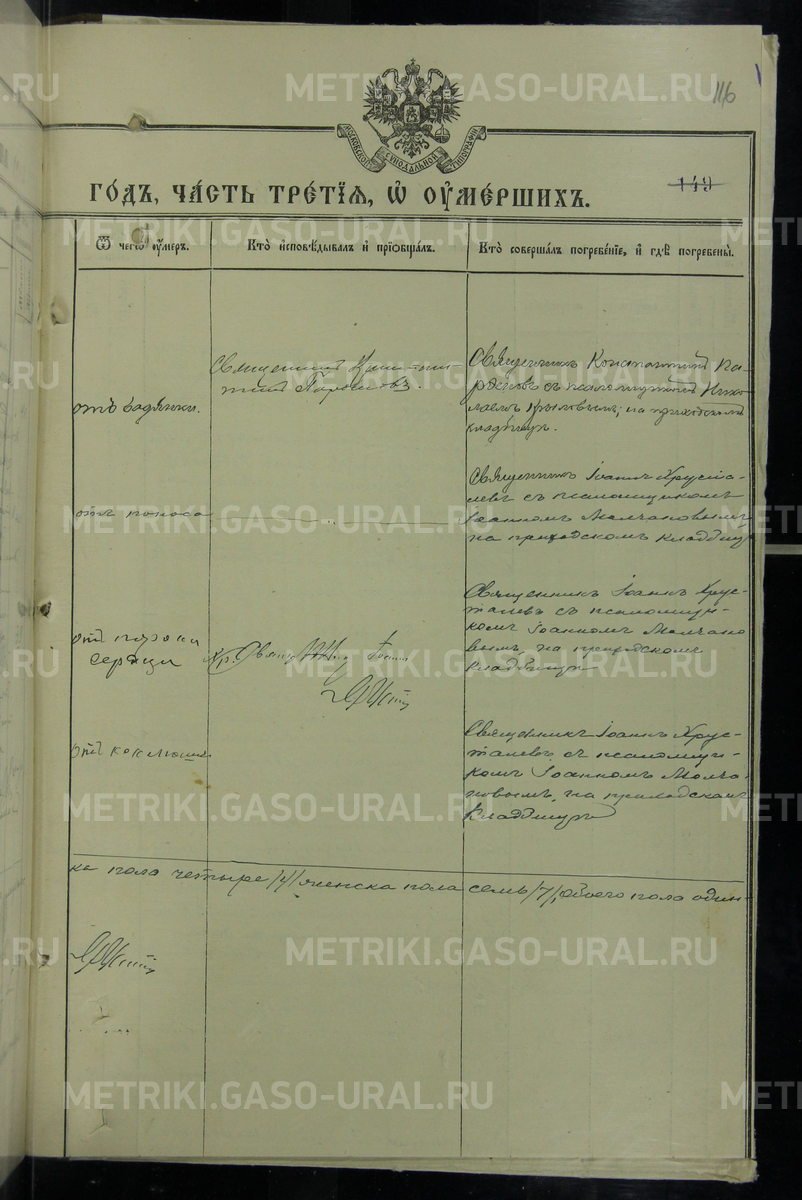 METRIKI.GASO-URAL.RU
116
МОСКОВСКОЙ СѴНОДАЛЬНОЙ ТИПОГРАФІИ
149
ГО́ДЪ, ЧА́СТЬ ТРЕ́ТІѦ, Ѡ҆ ОУ҆МЕ́РШИХЪ.
Ѿ чегѡ̀ оу҆́меръ.
Кто̀ и҆сповѣ́дывалъ и҆ прїѡбща́лъ.
Кто̀ соверша́лъ погребе́нїе, и҆ гдѣ̀ погребены̀.
отъ водянки.
Священникъ
Священникъ Константинъ Па-
съ псаломщикомъ Нико-
лаемъ Крыловымъ; на приходскомъ
кладбищѣ.
отъ поноса
Священникъ Іоаннъ Хруста-
левъ съ псаломщикомъ
Іоанномъ Молчановымъ,
на приходскомъ кладбищѣ
отъ порока
сердца
Священникъ Іоаннъ Хрус-
талевъ съ псаломщи-
комъ Іоанномъ Молчано
вымъ, на приходскомъ
кладбищѣ
отъ коклюша
Священникъ Іоаннъ Хрус-
талевъ съ псаломщи-
комъ Іоанномъ Молча-
новымъ, на приходскомъ
кладбищѣ
ка пола четыре /4/ женска пола семь /7/, обоего пола один-